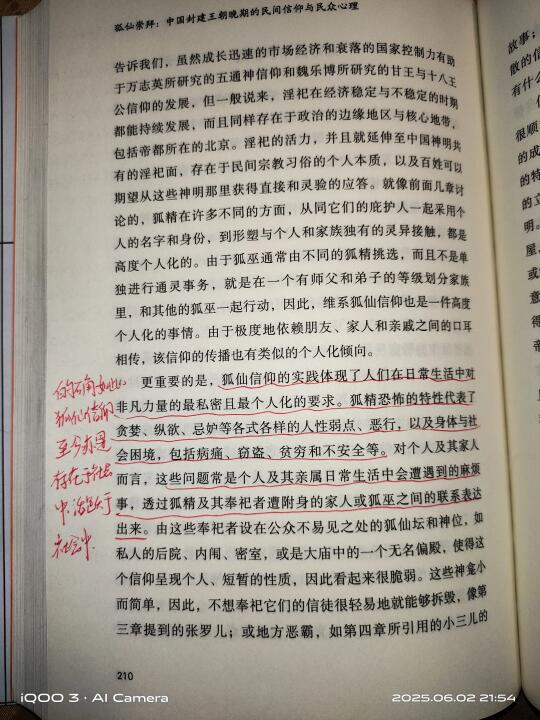 狐仙崇拜：中国封建王朝晚期的民间信仰与民众心理
告诉我们，虽然成长迅速的市场经济和衰落的国家控制力有助
于万志英所研究的五通神信仰和魏乐博所研究的甘王与十八王
公信仰的发展，但一般说来，淫祀在经济稳定与不稳定的时期
都能持续发展，而且同样存在于政治的边缘地区与核心地带，
包括帝都所在的北京。淫祀的活力，并且就延伸至中国神明共
有的淫祀面，存在于民间宗教习俗的个人本质，以及百姓可以
期望从这些神明那里获得直接和灵验的应答。就像前面几章讨
论的，狐精在许多不同的方面，从同它们的庇护人一起采用个
人的名字和身份，到形塑与个人和家族独有的灵异接触，都是
高度个人化的。由于狐巫通常由不同的狐精挑选，而且不是单
独进行通灵事务，就是在一个有师父和弟子的等级划分家族
里，和其他的狐巫一起行动，因此，维系狐仙信仰也是一件高度
个人化的事情。由于极度地依赖朋友、家人和亲戚之间的口耳
相传，该信仰的传播也有类似的个人化倾向。
更重要的是，狐仙信仰的实践体现了人们在日常生活中对
非凡力量的最私密且最个人化的要求。狐精恐怖的特性代表了
贪婪、纵欲、忌妒等各式各样的人性弱点、恶行，以及身体与社
会困境，包括病痛、窃盗、贫穷和不安全等。对个人及其家人
而言，这些问题常是个人及其亲属日常生活中会遭遇到的麻烦
事，透过狐精及其奉祀者遭附身的家人或狐巫之间的联系表达
出来。由这些奉祀者设在公众不易见之处的狐仙坛和神位，如
私人的后院、内闱、密室，或是大庙中的一个无名偏殿，使得这
个信仰呈现个人、短暂的性质，因此看起来很脆弱。这些神龛小
而简单，因此，不想奉祀它们的信徒很轻易地就能够拆毁，像第
三章提到的张罗儿；或地方恶霸，如第四章所引用的小三儿的
210
狐仙信仰
至今亦是
存在于社
社会中
故事；
散的信
有什么
很顺
的成
的特
的立
明。
屋，
或
意
得
帝
iQOO 3 · AI Camera
2025.06.02 21:54